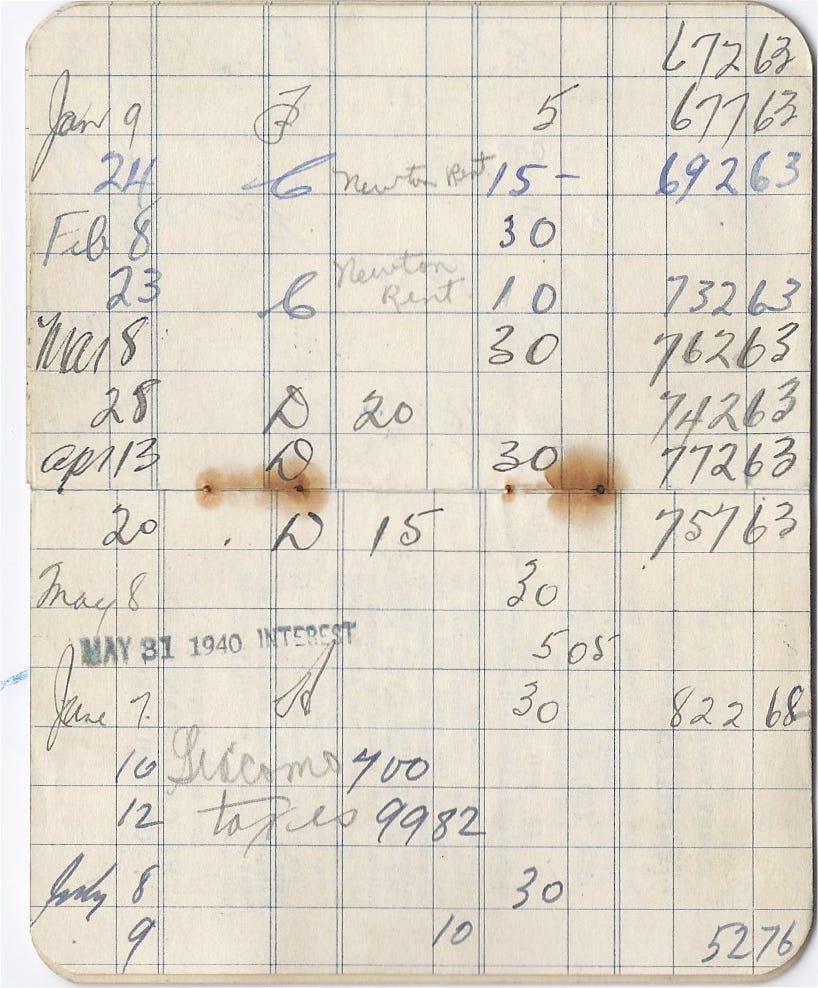 67263
Jan 9 F 5 67763
24 C Newton Rent 15 - 69263
Feb 8 30
23 C Newton Rent 10 73263
Mar 8 30 76263
28 D 20 74263
apr 13 D 30 77263
20 D 15 75763
May 8 30
MAY 31 1940 INTEREST 505
June 7. A 30 82268
10 Giacomo 700
12 taxes 9982
July 8 30
9 10 5276